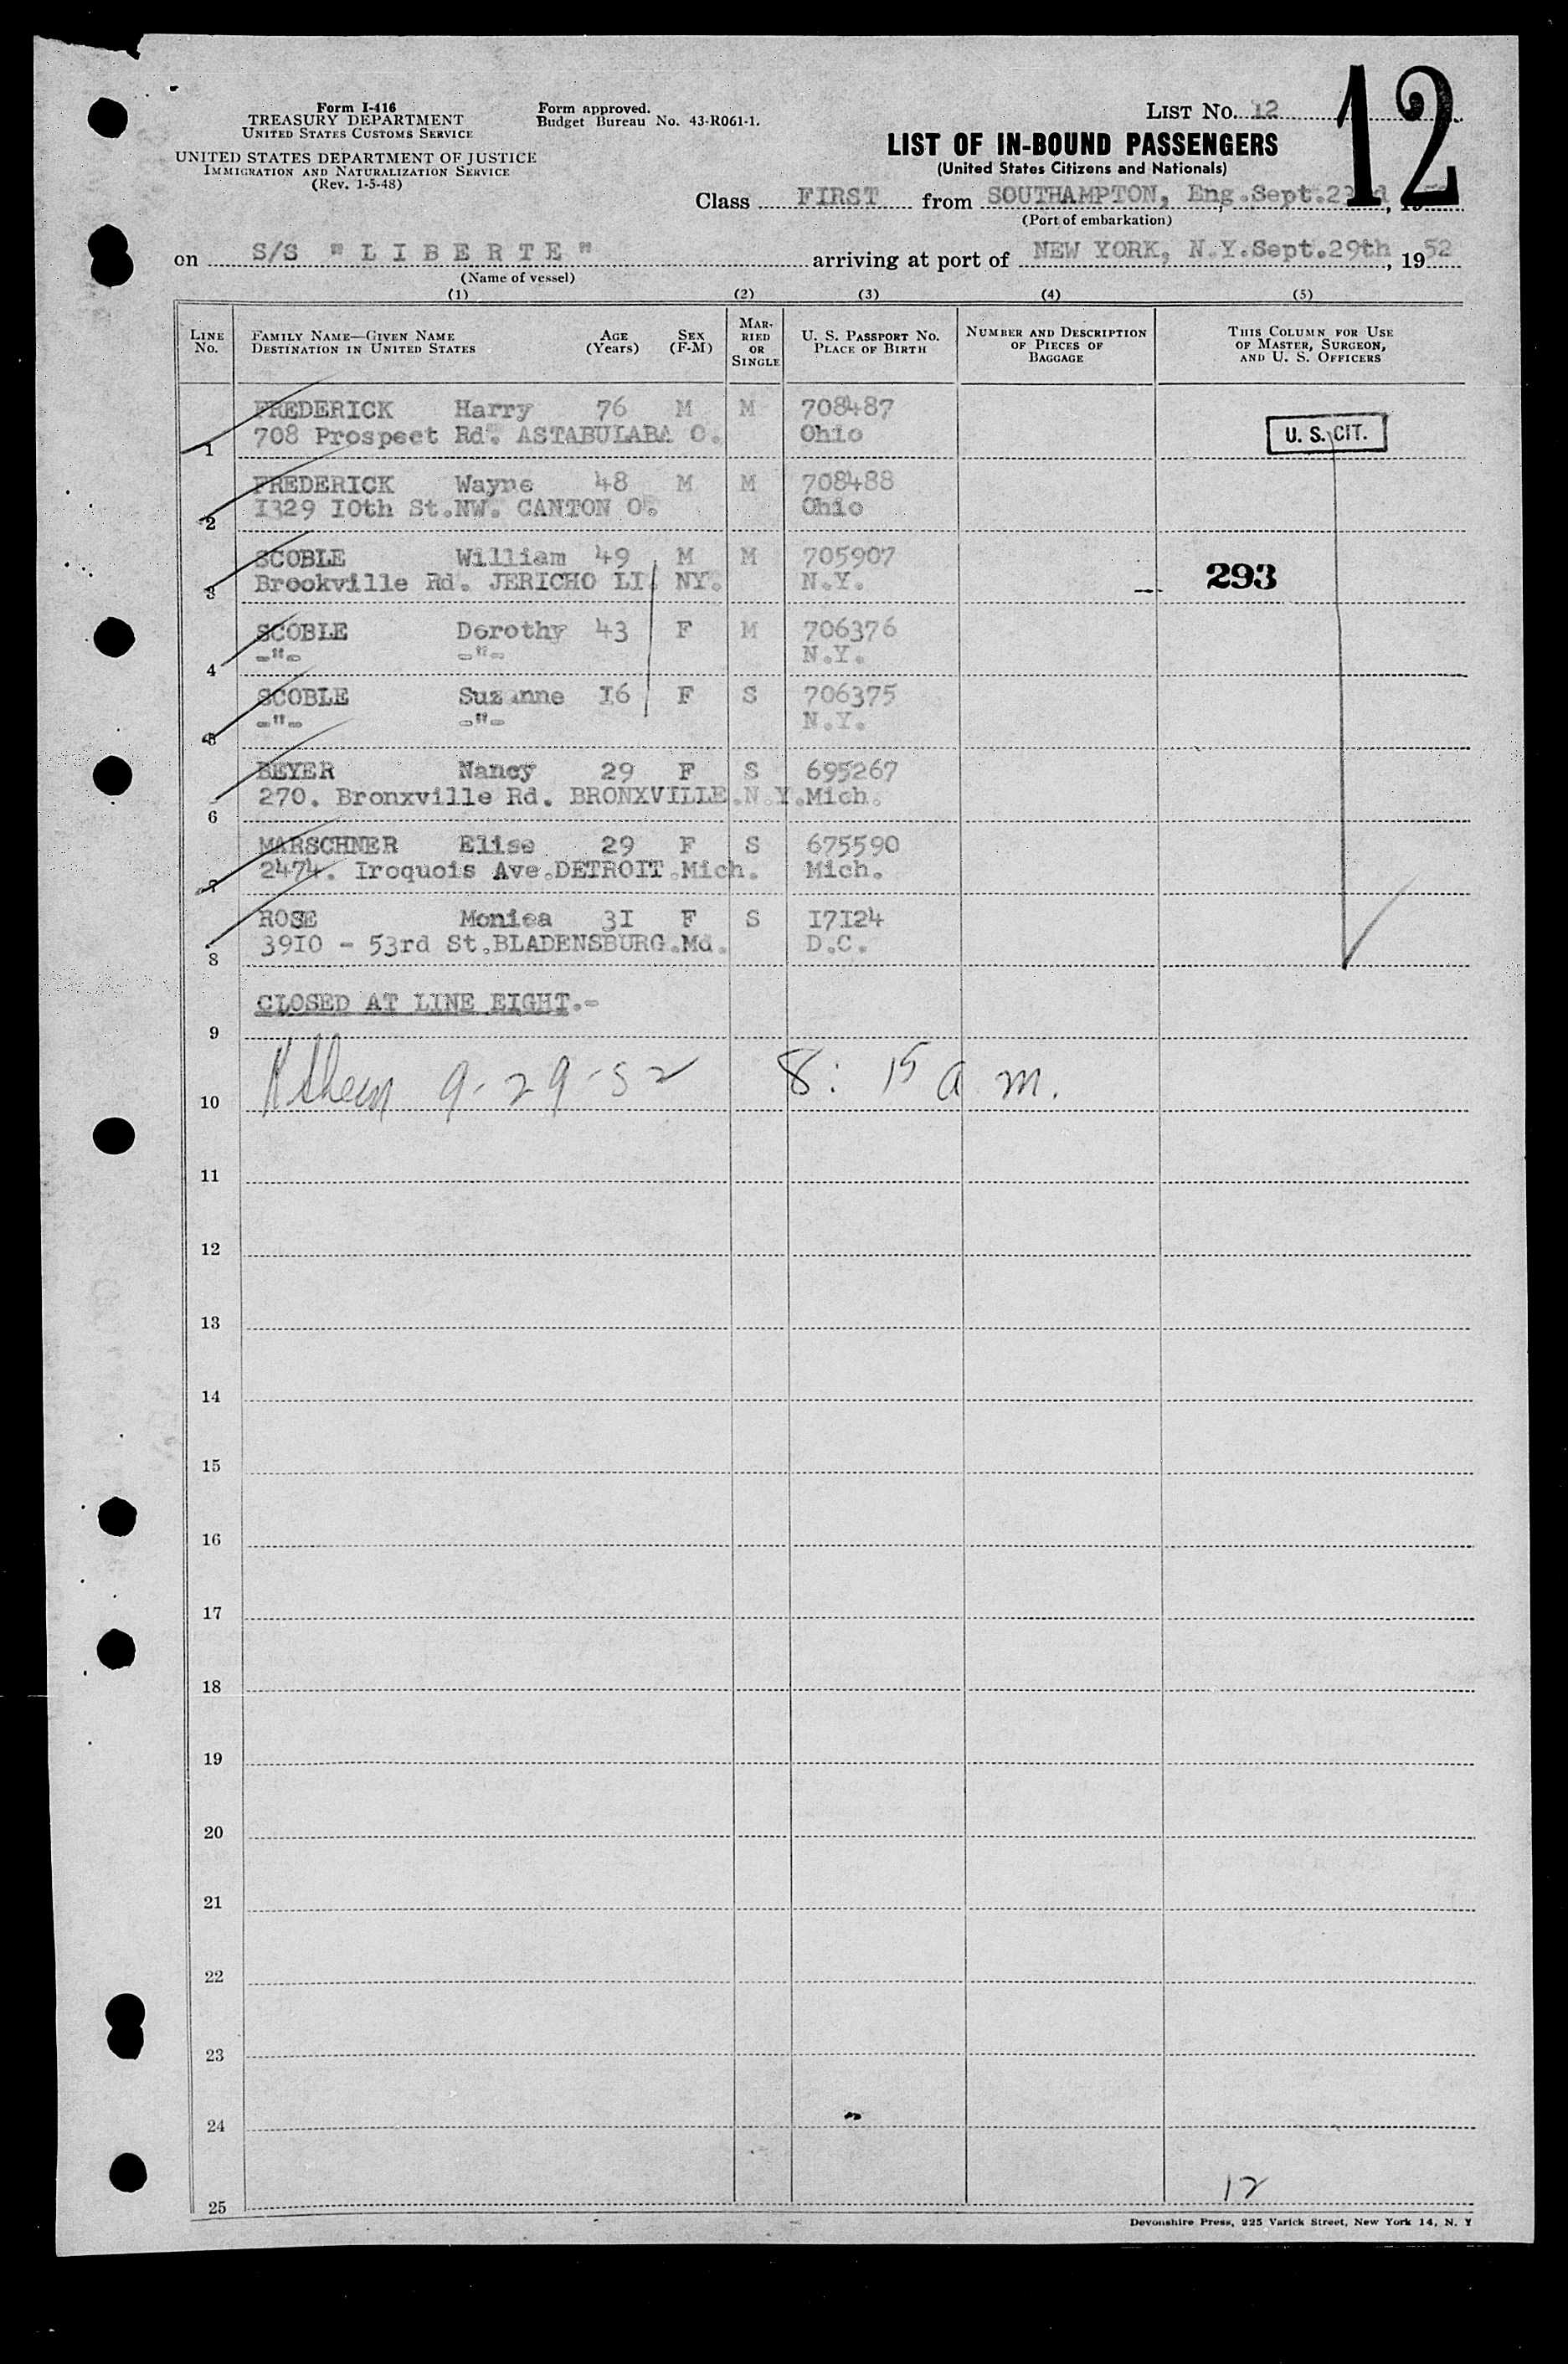 12
Form I-416
TREASURY DEPARTMENT
UNITED STATES CUSTOMS SERVICE
UNITED STATES DEPARTMENT OF JUSTICE
IMMIGRATION AND NATURALIZATION SERVICE
(Rev. 1-5-48)
Form approved.
Budget Bureau No. 43-R061-1.
LIST No. 12
LIST OF IN-BOUND PASSENGERS
(United States Citizens and Nationals)
Class FIRST from SOUTHAMPTON, Eng. Sept.23rd, 19
(Port of embarkation)
on S/S "LIBERTE" arriving at port of NEW YORK, N.Y. Sept.29th, 1952
(Name of vessel)
(1) (2) (3) (4) (5)
LINE No. FAMILY NAME—GIVEN NAME DESTINATION IN UNITED STATES AGE (Years) SEX (F-M) MARRIED OR SINGLE U. S. PASSPORT No. PLACE OF BIRTH NUMBER AND DESCRIPTION OF PIECES OF BAGGAGE THIS COLUMN FOR USE OF MASTER, SURGEON, AND U. S. OFFICERS
FREDERICK Harry 76 M M 708487
1 708 Prospect Rd. ASTABULABA O. Ohio U. S. CIT.
FREDERICK Wayne 48 M M 708488
2 I329 IOth St.NW. CANTON O. Ohio
SCOBLE William 49 M M 705907
3 Brookville Rd. JERICHO LI. NY. N.Y. 293
SCOBLE Dorothy 43 F M 706376
4 -"- -"- N.Y.
SCOBLE Suzanne I6 F S 706375
5 -"- -"- N.Y.
BEYER Nancy 29 F S 695267
6 270. Bronxville Rd. BRONXVILLE.N.Y. Mich.
MARSCHNER Elise 29 F S 675590
7 2474. Iroquois Ave.DETROIT.Mich. Mich.
ROSE Monica 3I F S I7I24
8 39IO - 53rd St.BLADENSBURG.Md. D.C.
CLOSED AT LINE EIGHT.-
9
9-29-52 8:15 a.m.
10
11
12
13
14
15
16
17
18
19
20
21
22
23
24
12
25
Devonshire Press, 225 Varick Street, New York 14, N. Y